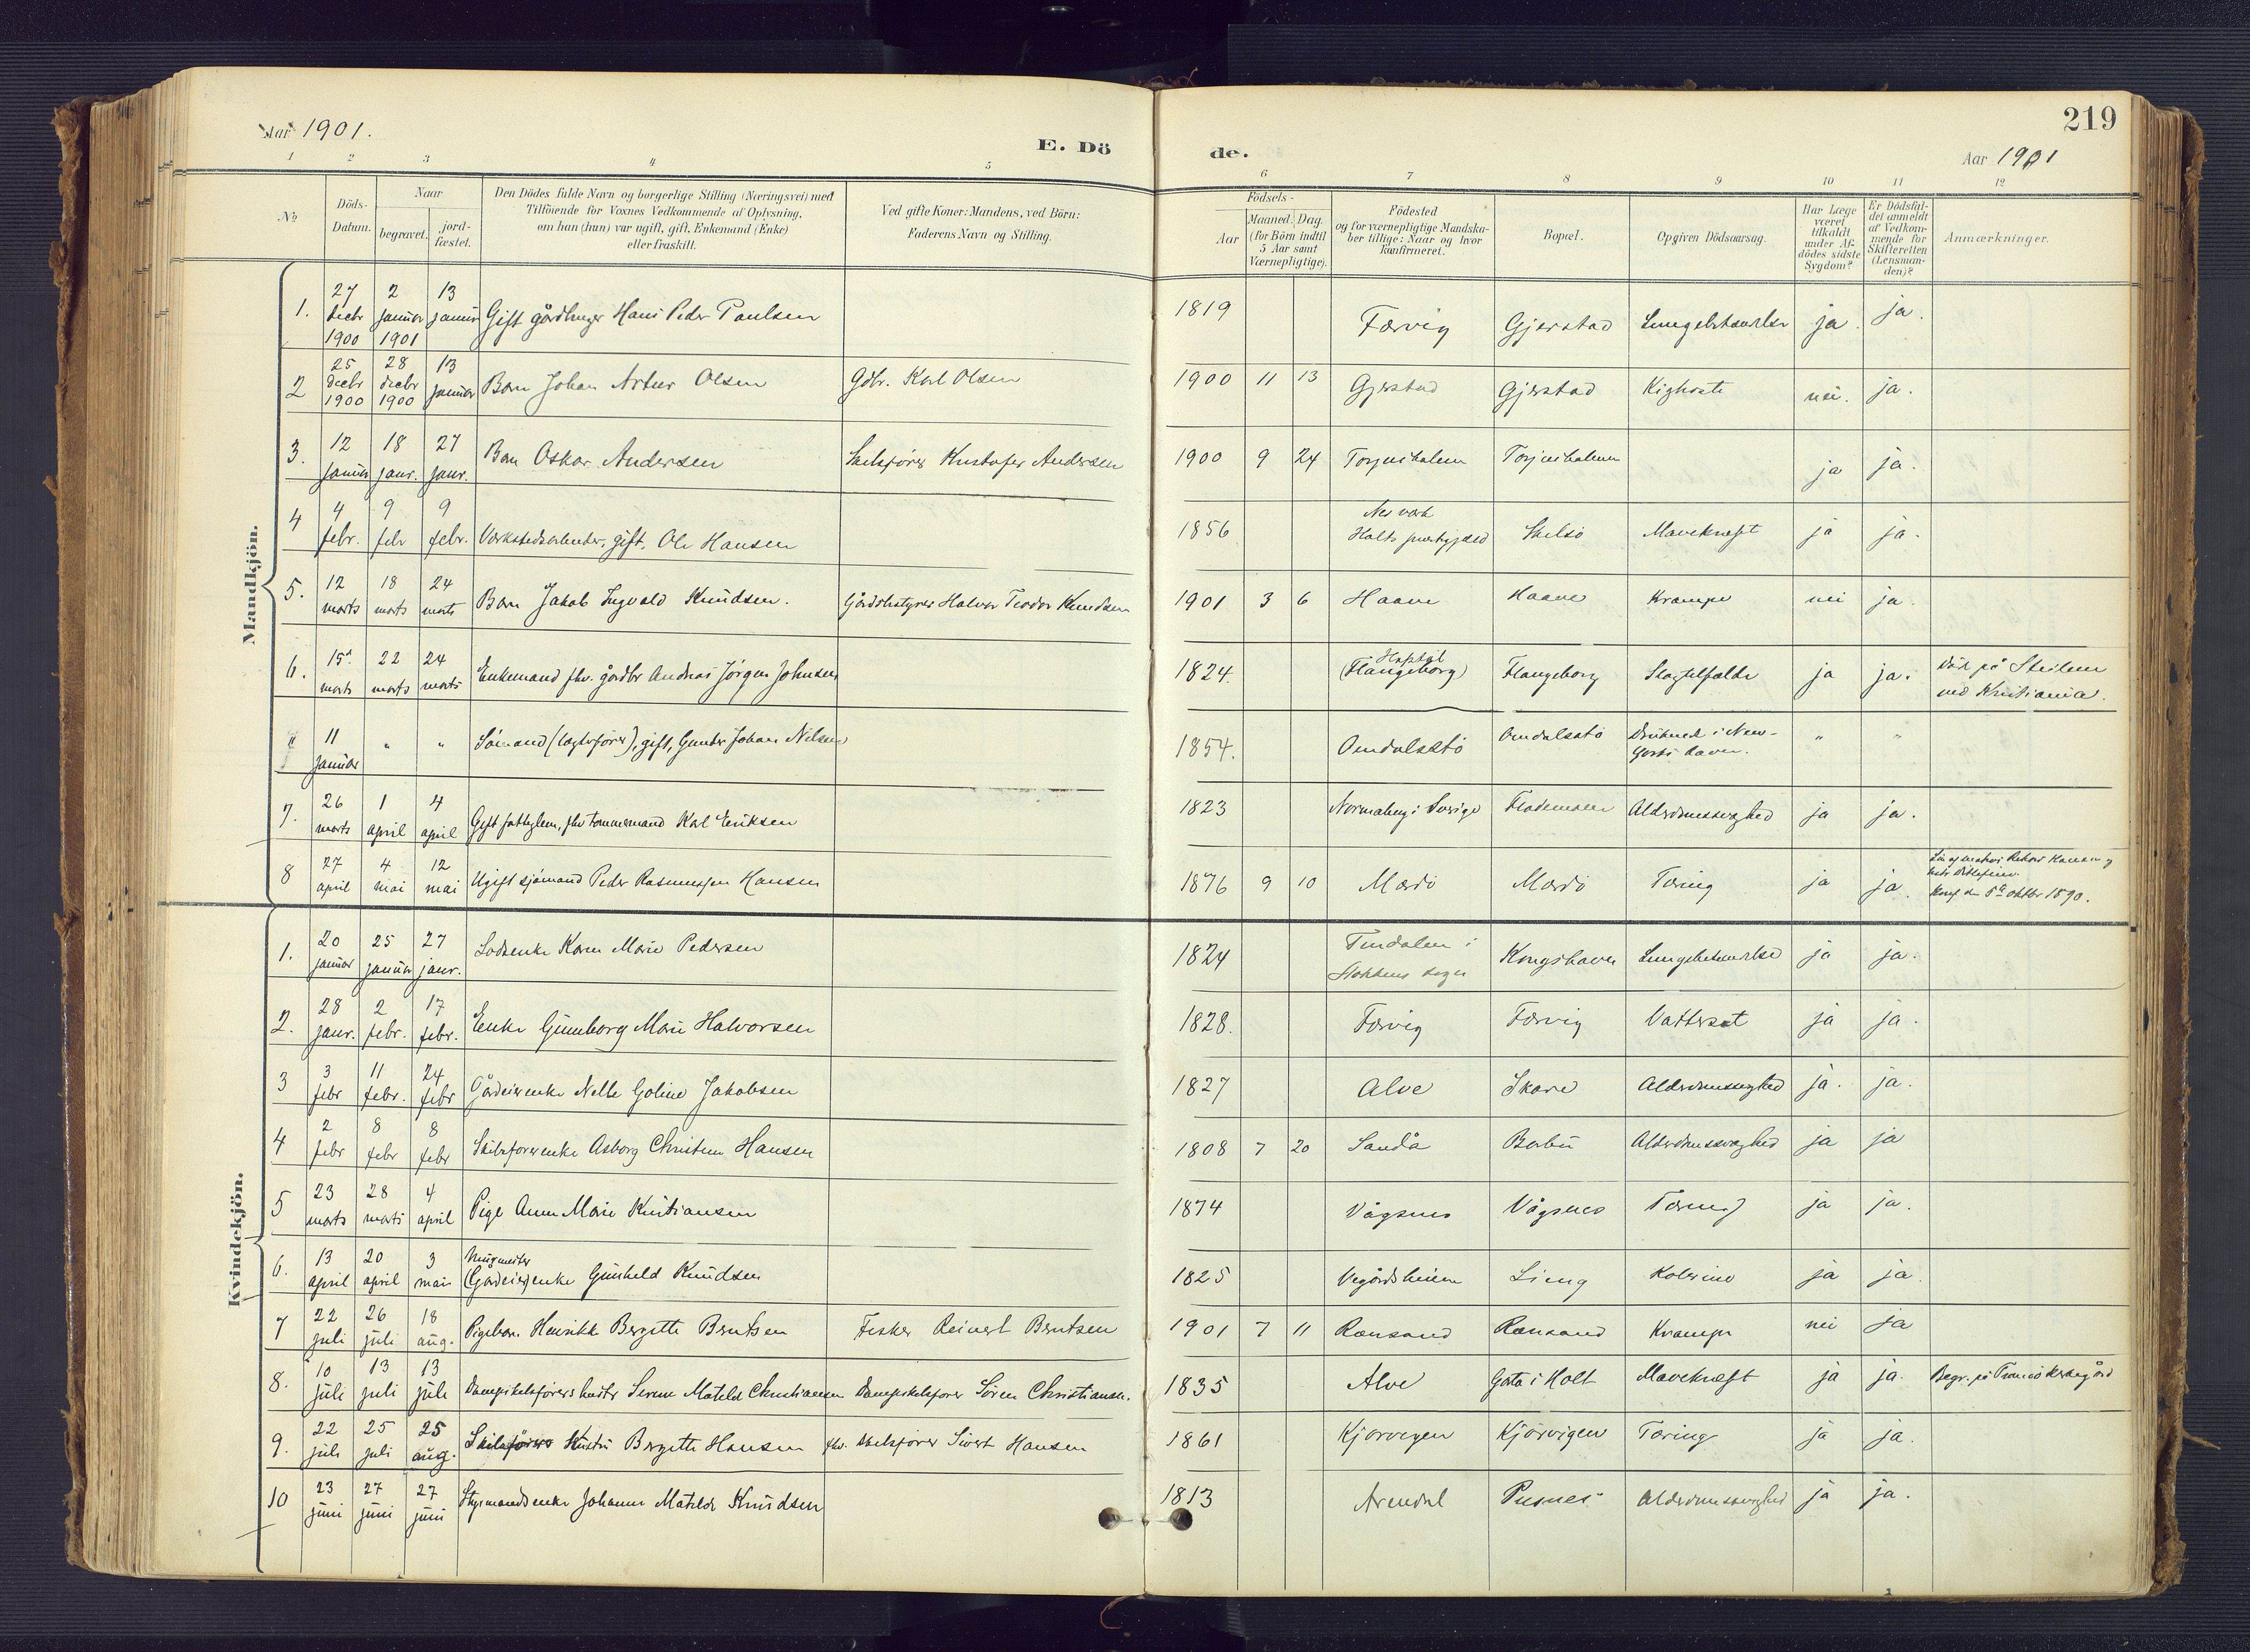 Aar 1901.
E. Dö
de.
219
Aar 1901
1 2 3 4 5 6 7 8 9 10 11 12
No
Döds-Datum.
Naar
begravet.
jord-fæstet.
Den Dödes fulde Navn og borgerlige Stilling (Næringsvei) med
Tilföiende for Voxnes Vedkommende af Oplysning,
om han (hun) var ugift, gift, Enkemand (Enke)
eller fraskilt.
Ved gifte Koner: Mandens, ved Börn:
Faderens Navn og Stilling.
Födsels-
Aar
Maaned. Dag.
(for Börn indtil
5 Aar samt
Værnepligtige).
Födested
og for værnepligtige Mandska-
ber tillige: Naar og hvor
konfirmeret.
Bopæl.
Opgiven Dödsaarsag.
Har Læge
været
tilkaldt
under Af-
dödes sidste
Sygdom?
Er Dödsfal-
det anmeldt
af Vedkom-
mende for
Skifteretten
(Lensman-
den)?
Anmærkninger.
Mandkjön.
1. 27 decbr 1900 2 januar 1901 13 januar Gift gårdbruger Hans Peder Paulsen 1819 Færvig Gjerstad Lungebetændelse ja. ja.
2 25 decbr 1900 28 decbr 1900 13 januar Barn Johan Artur Olsen Gdbr. Karl Olsen 1900 11 13 Gjerstad Gjerstad Kighoste nei. ja.
3. 12 januar 18 janr. 27 janr. Barn Oskar Andersen Skibsfører Kristofer Andersen 1900 9 24 Torjusholmen Torjusholmen ja ja.
4 4 febr. 9 febr 9 febr. Værkstedsarbeider, gift, Ole Hansen 1856 Nes værk Holts prestegjæld Skilsø Mavekræft ja ja.
5. 12 marts 18 marts 24 marts Barn Jakob Ingvald Knudsen. Gårdbestyrer Halvor Teodor Knudsen 1901 3 6 Haave Haave Krampe nei ja.
6. 15de marts 22 marts 24 marts Enkemand fhv. gårdbr Andreas Jørgen Johnsen 1824. (Flangeborg) Flangeborg Slagtilfælde ja ja. Død på Steilene ved Kristiania.
" 11 januar " " Sømand (lagtefører), gift, Gunder Johan Nilsen 1854. Omdalsstø Omdalsstø Druknet i New-Yorks havn. " "
7. 26 marts 1 april 4 april Gift fattiglem, fhv tømmermand Karl Eriksen 1823 i Sverige Flademoen Alderdomssvaghed ja ja.
8 27 april 4 mai 12 mai Ugift sjømand Peder Rasmussen Hansen 1876 9 10 Mærdø Mærdø Tæring ja ja. Konf. den 5te oktbr 1890.
Kvindekjön.
1. 20 januar 25 januar 27 janr. Lodsenke Karen Marie Pedersen 1824 Tindalen i Stokkens sogn Kongshavn Lungebetændelse ja ja.
2. 28 janr. 2 febr. 17 febr. Enke Gunborg Marie Halvorsen 1828. Færvig Færvig Vattersot ja ja.
3 3 febr 11 febr. 24 febr Gårdeierenke Nelle Goline Jakobsen 1827 Alve Skare Alderdomssvaghed ja. ja.
4 2 febr 8 febr 8 febr Skibsførerenke Asborg Christine Hansen 1808 7 20 Sandå Barbu Alderdomssvaghed ja ja
5 23 marts 28 marts 4 april Pige Anne Marie Kristiansen 1874 Vågsnes Vågsnes Tæring ja ja.
6. 13 april 20 april 3 mai Murmester (Gårdeier)enke Gunhild Knudsen 1825 Vegårdsheien Lieng Kolerine ja ja.
7 22 juli 26 juli 18 aug. Pigebarn Henrikke Bergitte Berntsen Fisker Reinert Berntsen 1901 7 11 Rænsand Rænsand Krampe nei ja
8. 10 juli 13 juli 13 juli Dampskibsførers hustr Serine Matilde Christiansen Dampskibsfører Søren Christiansen. 1835 Alve Gata i Holt Mavekræft ja ja. Begr. på Tromø kirkegård
9. 22 juli 25 juli 25 aug. Skibsførers Hustru Bergitte Hansen fhv. skibsfører Sivert Hansen 1861 Kjørvigen Kjørvigen Tæring ja ja.
10 23 juni 27 juni 27 juni Styrmandsenke Johanne Matilde Knudsen 1813 Arendal Pusnes Alderdomssvaghed ja ja.